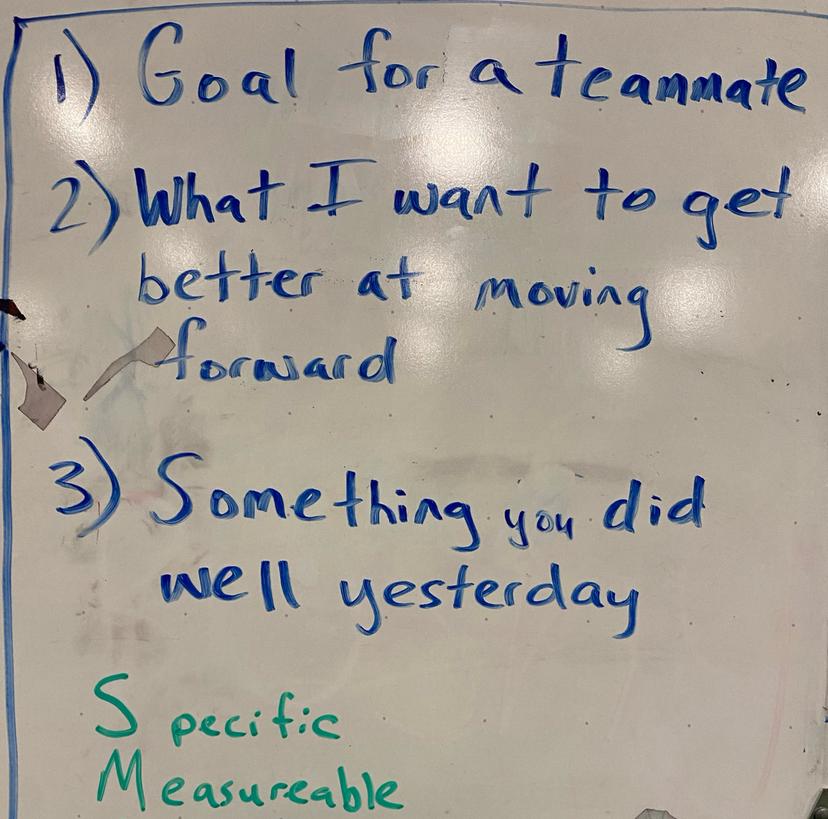 1) Goal for a teammate
2) What I want to get
better at moving
forward
3) Something you did
well yesterday
Specific
Measureable